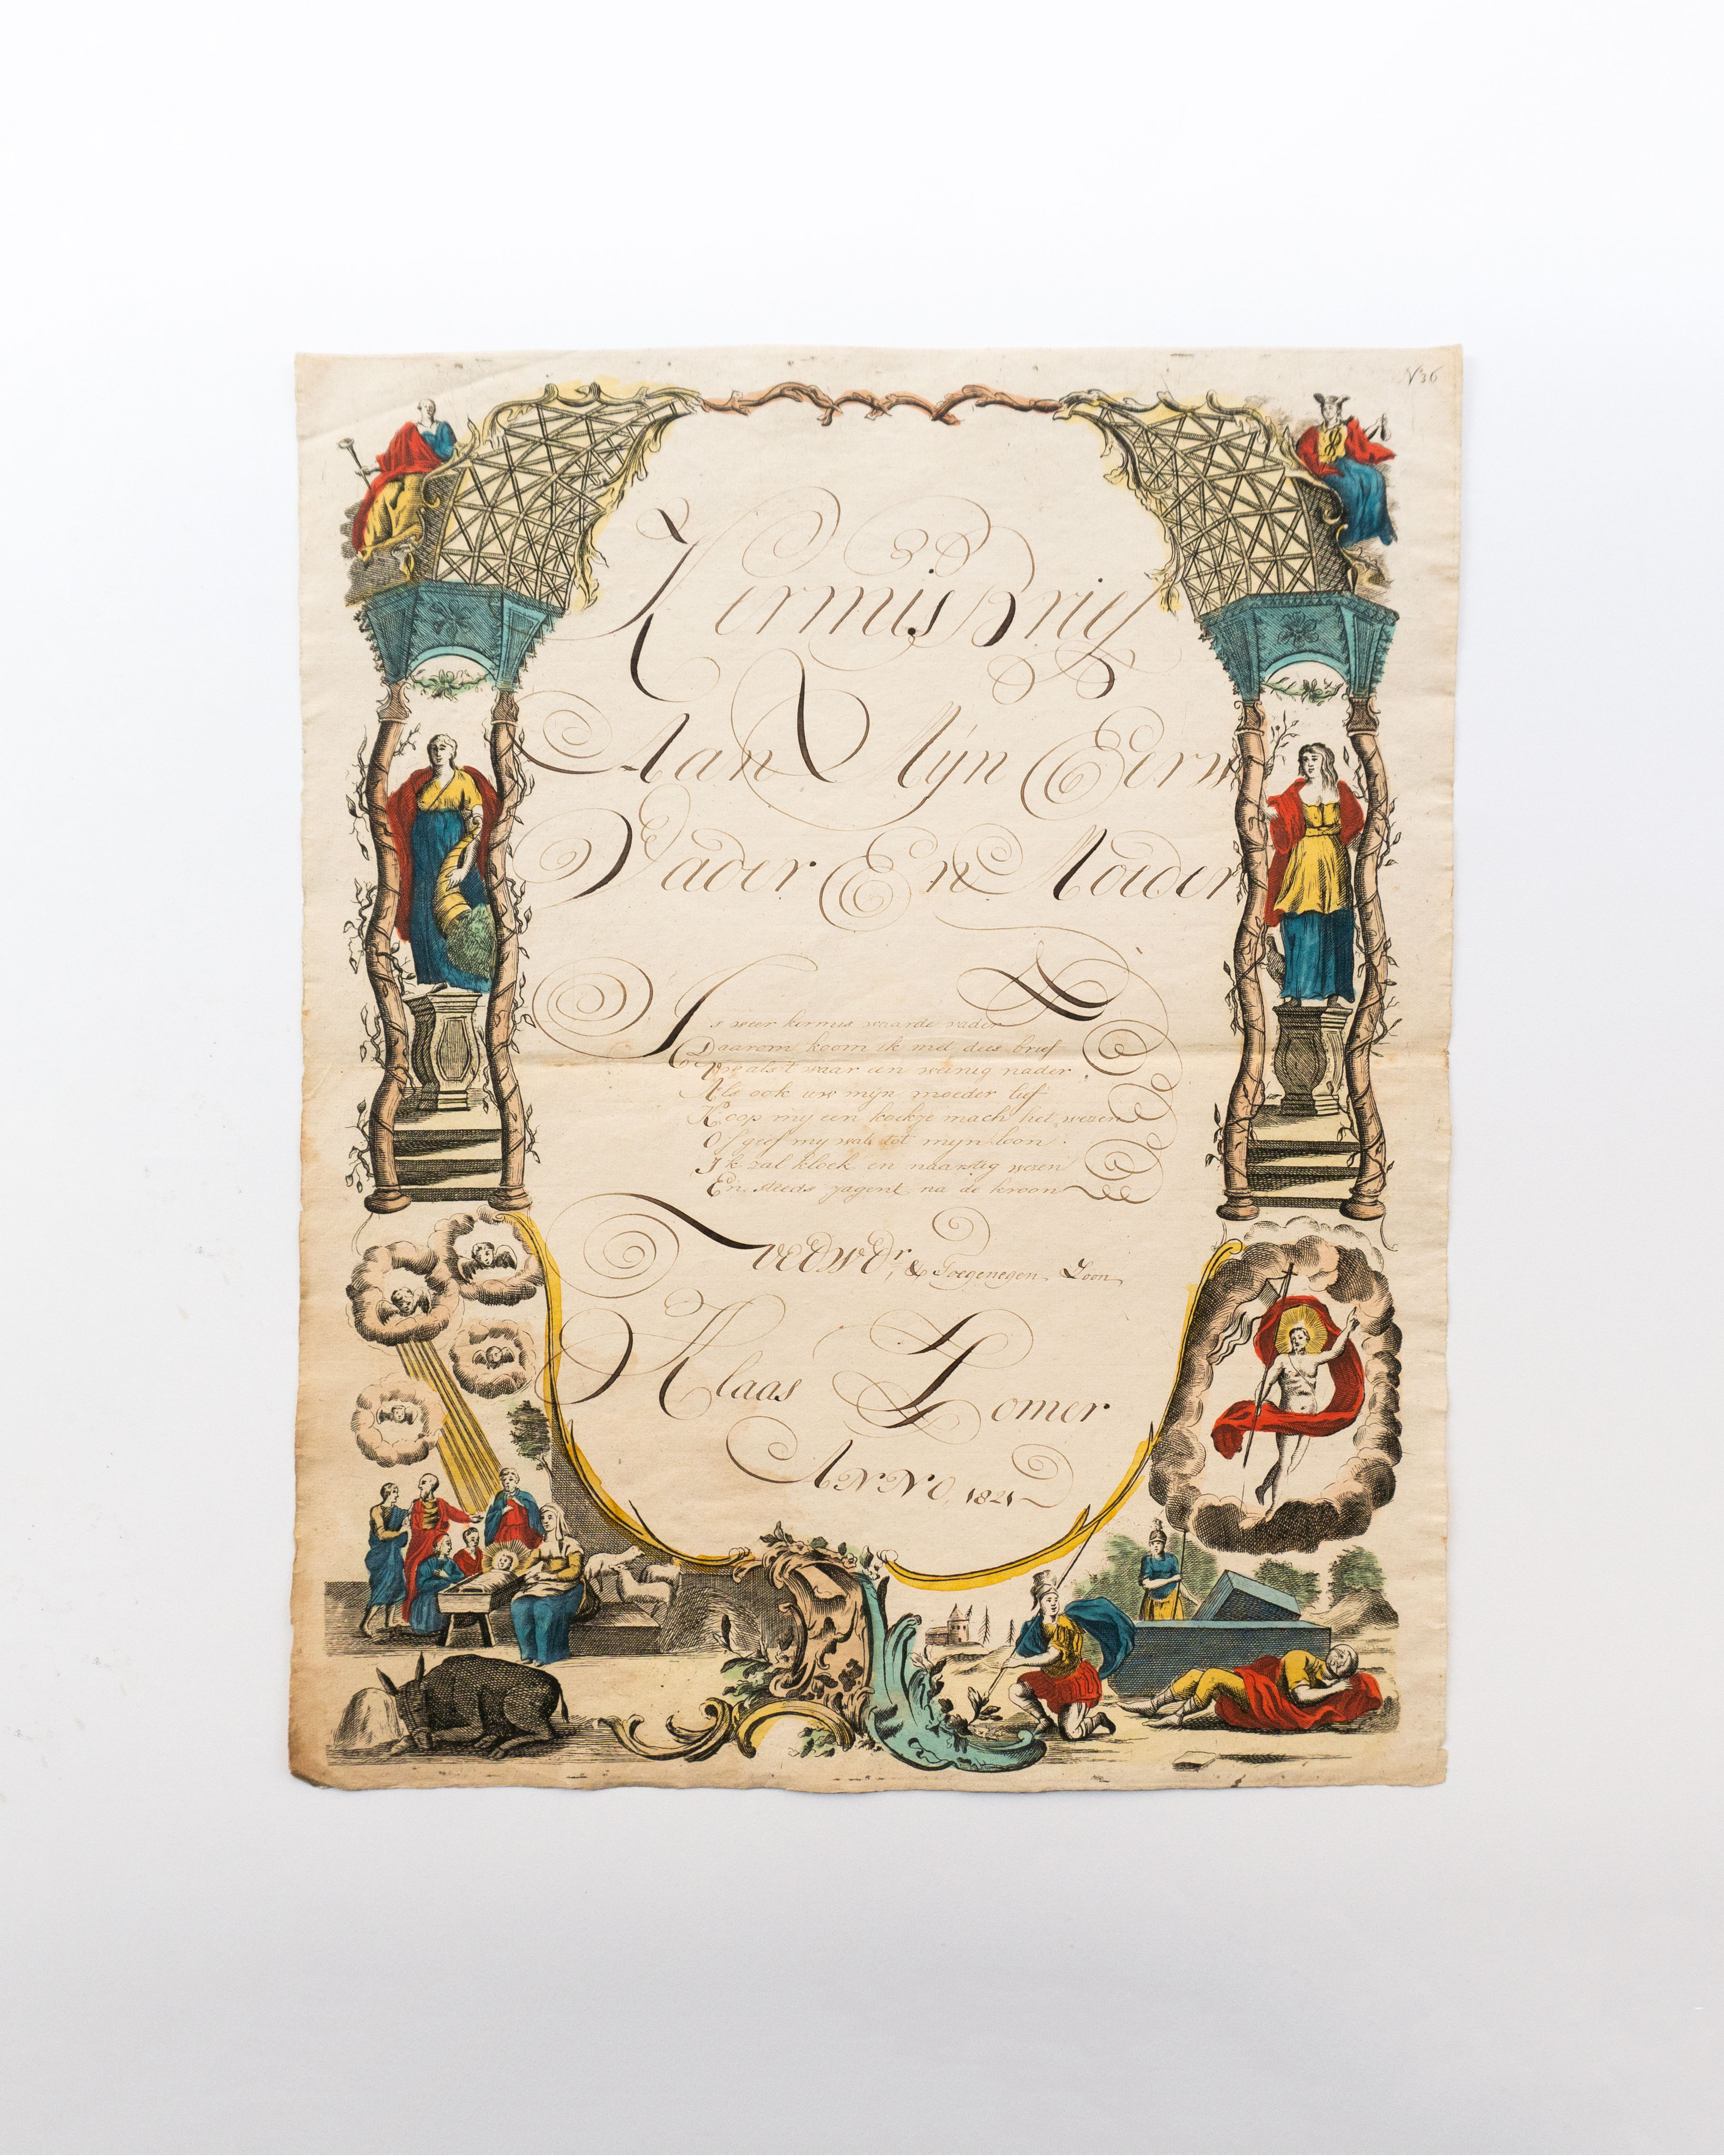 N 36
Kermis Brief
Aan Mijn Eerw
Vader En Moeder
Is weer kermis waarde vader
Daarom koom ik met dees brief
U als t waar een weinig nader
Als ook uw mijn moeder lief
Koop my een koekje mach het wezen
Of geef my wat tot mijn loon
Ik zal kloek en naarstig wezen
En steeds jagent na de kroon
UEDWDr, & Toegenegen Zoon
Klaas Zomer
ANNO, 1821